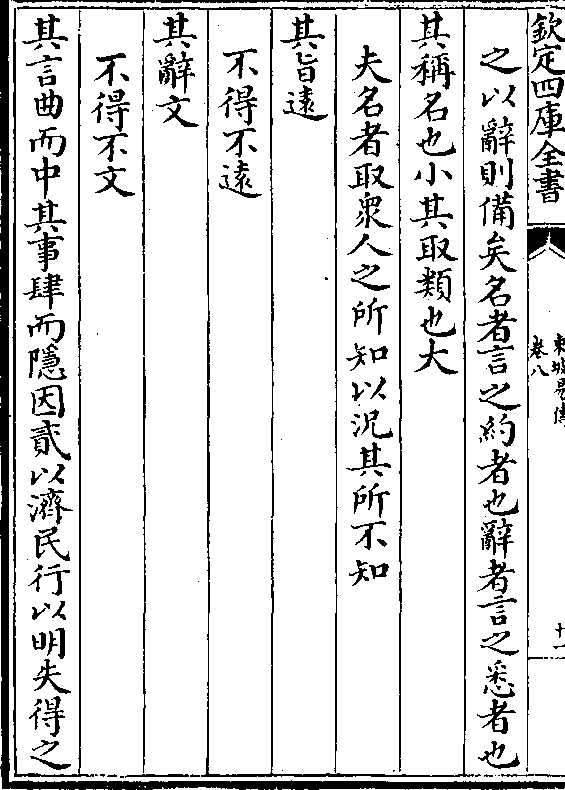 欽定四庫全書
東坡易傳
卷八
十一
之以辭則備矣名者言之約者也辭者言之悉者也
其稱名也小其取類也大
夫名者取衆人之所知以況其所不知
其旨遠
不得不遠
其辭文
不得不文
其言曲而中其事肆而隱因貳以濟民行以明失得之